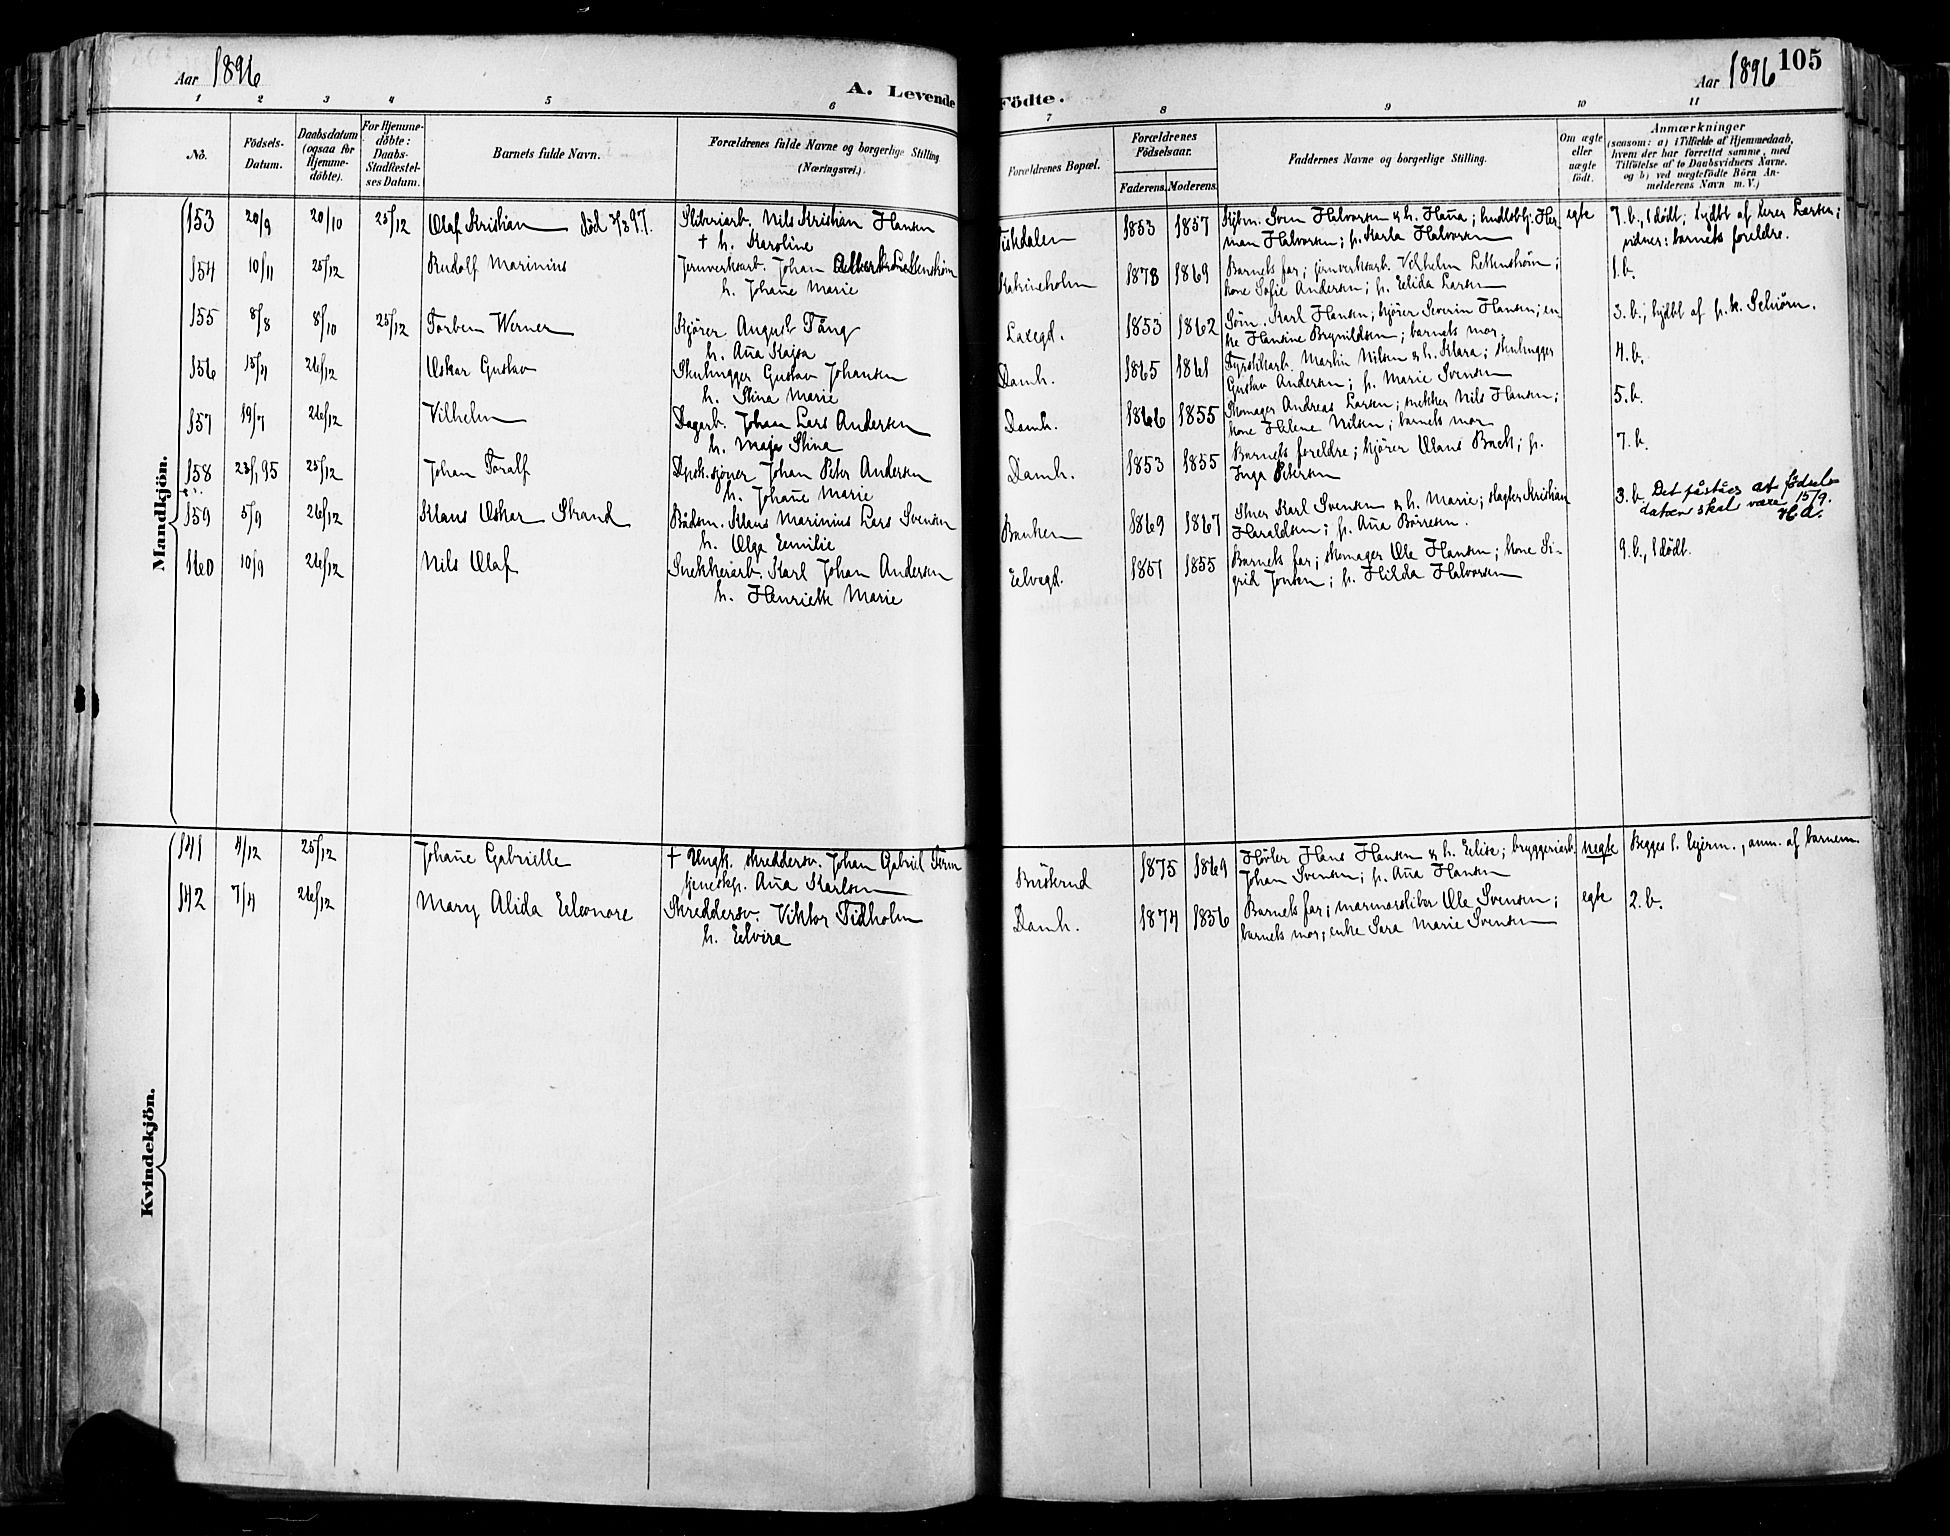 Aar 1896
A. Levende Födte.
Aar 1896 105
1 2 3 4 5 6 7 8 9 10 11
No.
Födsels-
Datum.
Daabsdatum
(ogsaa for
Hjemme-
döbte).
For Hjemme-
döbte:
Daabs-
Stadfæstel-
ses Datum.
Barnets fulde Navn.
Forældrenes fulde Navne og borgerlige Stilling
(Næringsvei.)
Forældrenes Bopæl.
Forældrenes
Födselsaar.
Faderens. Moderens.
Faddernes Navne og borgerlige Stilling.
Om ægte
eller
uægte
födt.
Anmærkninger
(saasom: a) i Tilfælde af Hjemmedaab,
hvem der har forrettet samme, med
Tilföielse af to Daabsvidners Navne,
og b) ved uægtefödte Börn An-
melderens Navn m. V.)
Mandkjön.
153 20/9 20/10 25/12 Olaf Kristian död 3/3 97. Sliberiarb. Nils Kristian Hansen
+ h. Karoline
Fiskdalen 1853 1857 Kjbm. Sven Halvorsen & h. Hanna; Her-
man Halvorsen; p. Karla Halvorsen
egte 7. b., 1 dödt; hjdbt af Larsen;
vidner: barnets foreldre.
154 10/11 25/12 Rudolf Marinius Jernverksarb. Johan Lettenström
h. Johanne Marie
Katrineholm 1873 1869 Barnets far; jernverksarb. Vilhelm Lettenström;
kone Sofie Andersen; p. Elida Larsen
1. b.
155 8/8 8/10 25/12 Torben Werner Kjörer August Tång
h. Anna Kajsa
Laxegd. 1853 1862 Söm. Karl Hansen; kjörer Severin Hansen; en-
ke Hansine Brynildsen; barnets mor
3. b.; hjdbt af p. k. Schiörn.
156 15/11 26/12 Oskar Gustav Stenhugger Gustav Johansen
h. Stina Marie
Damh. 1865 1861 Fyrstikarb. Martin Nilsen & h. Klara; stenhugger
Gustav Andersen; p. Marie Svensen
4. b.
157 19/7 26/12 Vilhelm Dagarb. Johan Lars Andersen
h. Maja Stina
Damh. 1866 1855 Skomager Andreas Larsen; snekker Nils Hansen;
kone Helene Nilsen; barnets mor
5. b.
158 23/1 95 25/12 Johan Toralf Johan Peter Andersen
h. Johanne Marie
Damh. 1853 1855 Barnets foreldre; kjörer Olaus Buck; p.
Inga Petersen
7. b.
159 5/9 26/12 Klaus Oskar Strand Bådsm. Klaus Marinius Lars Svensen
h. Olga Emilie
Banken 1869 1867 Karl Svensen & h. Marie; slagter Kristian
Haraldsen; p. Anna Börresen.
3. b. Det påståes at födsels
datoen skal være 15/9.
160 10/9 26/12 Nils Olaf Snekkerarb. Karl Johan Andersen
h. Henriette Marie
Elvegd. 1851 1855 Barnets far; skomager Ole Hansen; kone Si-
grid Jonsen; p. Hilda Halvorsen
9. b., 1 dödt.
Kvindekjön.
141 4/12 25/12 Johanne Gabrielle + Ungk. skreddersv. Johan Gabriel
tjenestep. Anna Karlsen
Buskerud 1875 1869 Hövler Hans Hansen & h. Elise; bryggeriarb.
Johan Svensen; p. Anna Hansen
uegte Begges 1. lejerm., anm. af barnem.
142 7/4 26/12 Mary Alida Eleonore Skreddersv. Viktor Tidholm
h. Elvira
Damh. 1874 1856 Barnets far; marmorsliber Ole Svensen;
barnets mor; enke Sara Marie Svensen
egte 2. b.